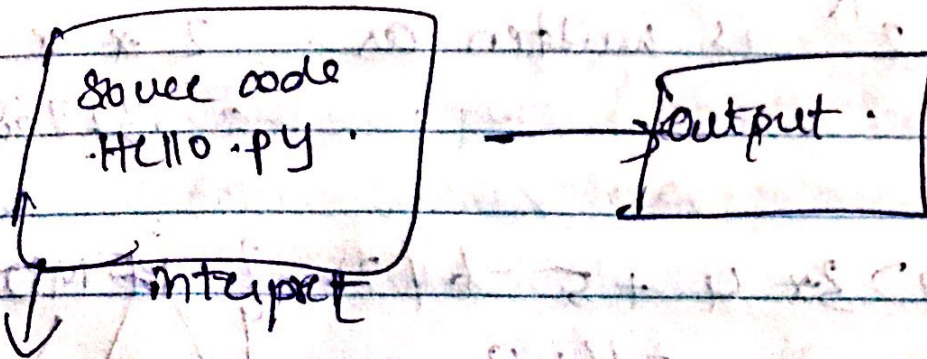 source code
Hello.py.
output.
interpret